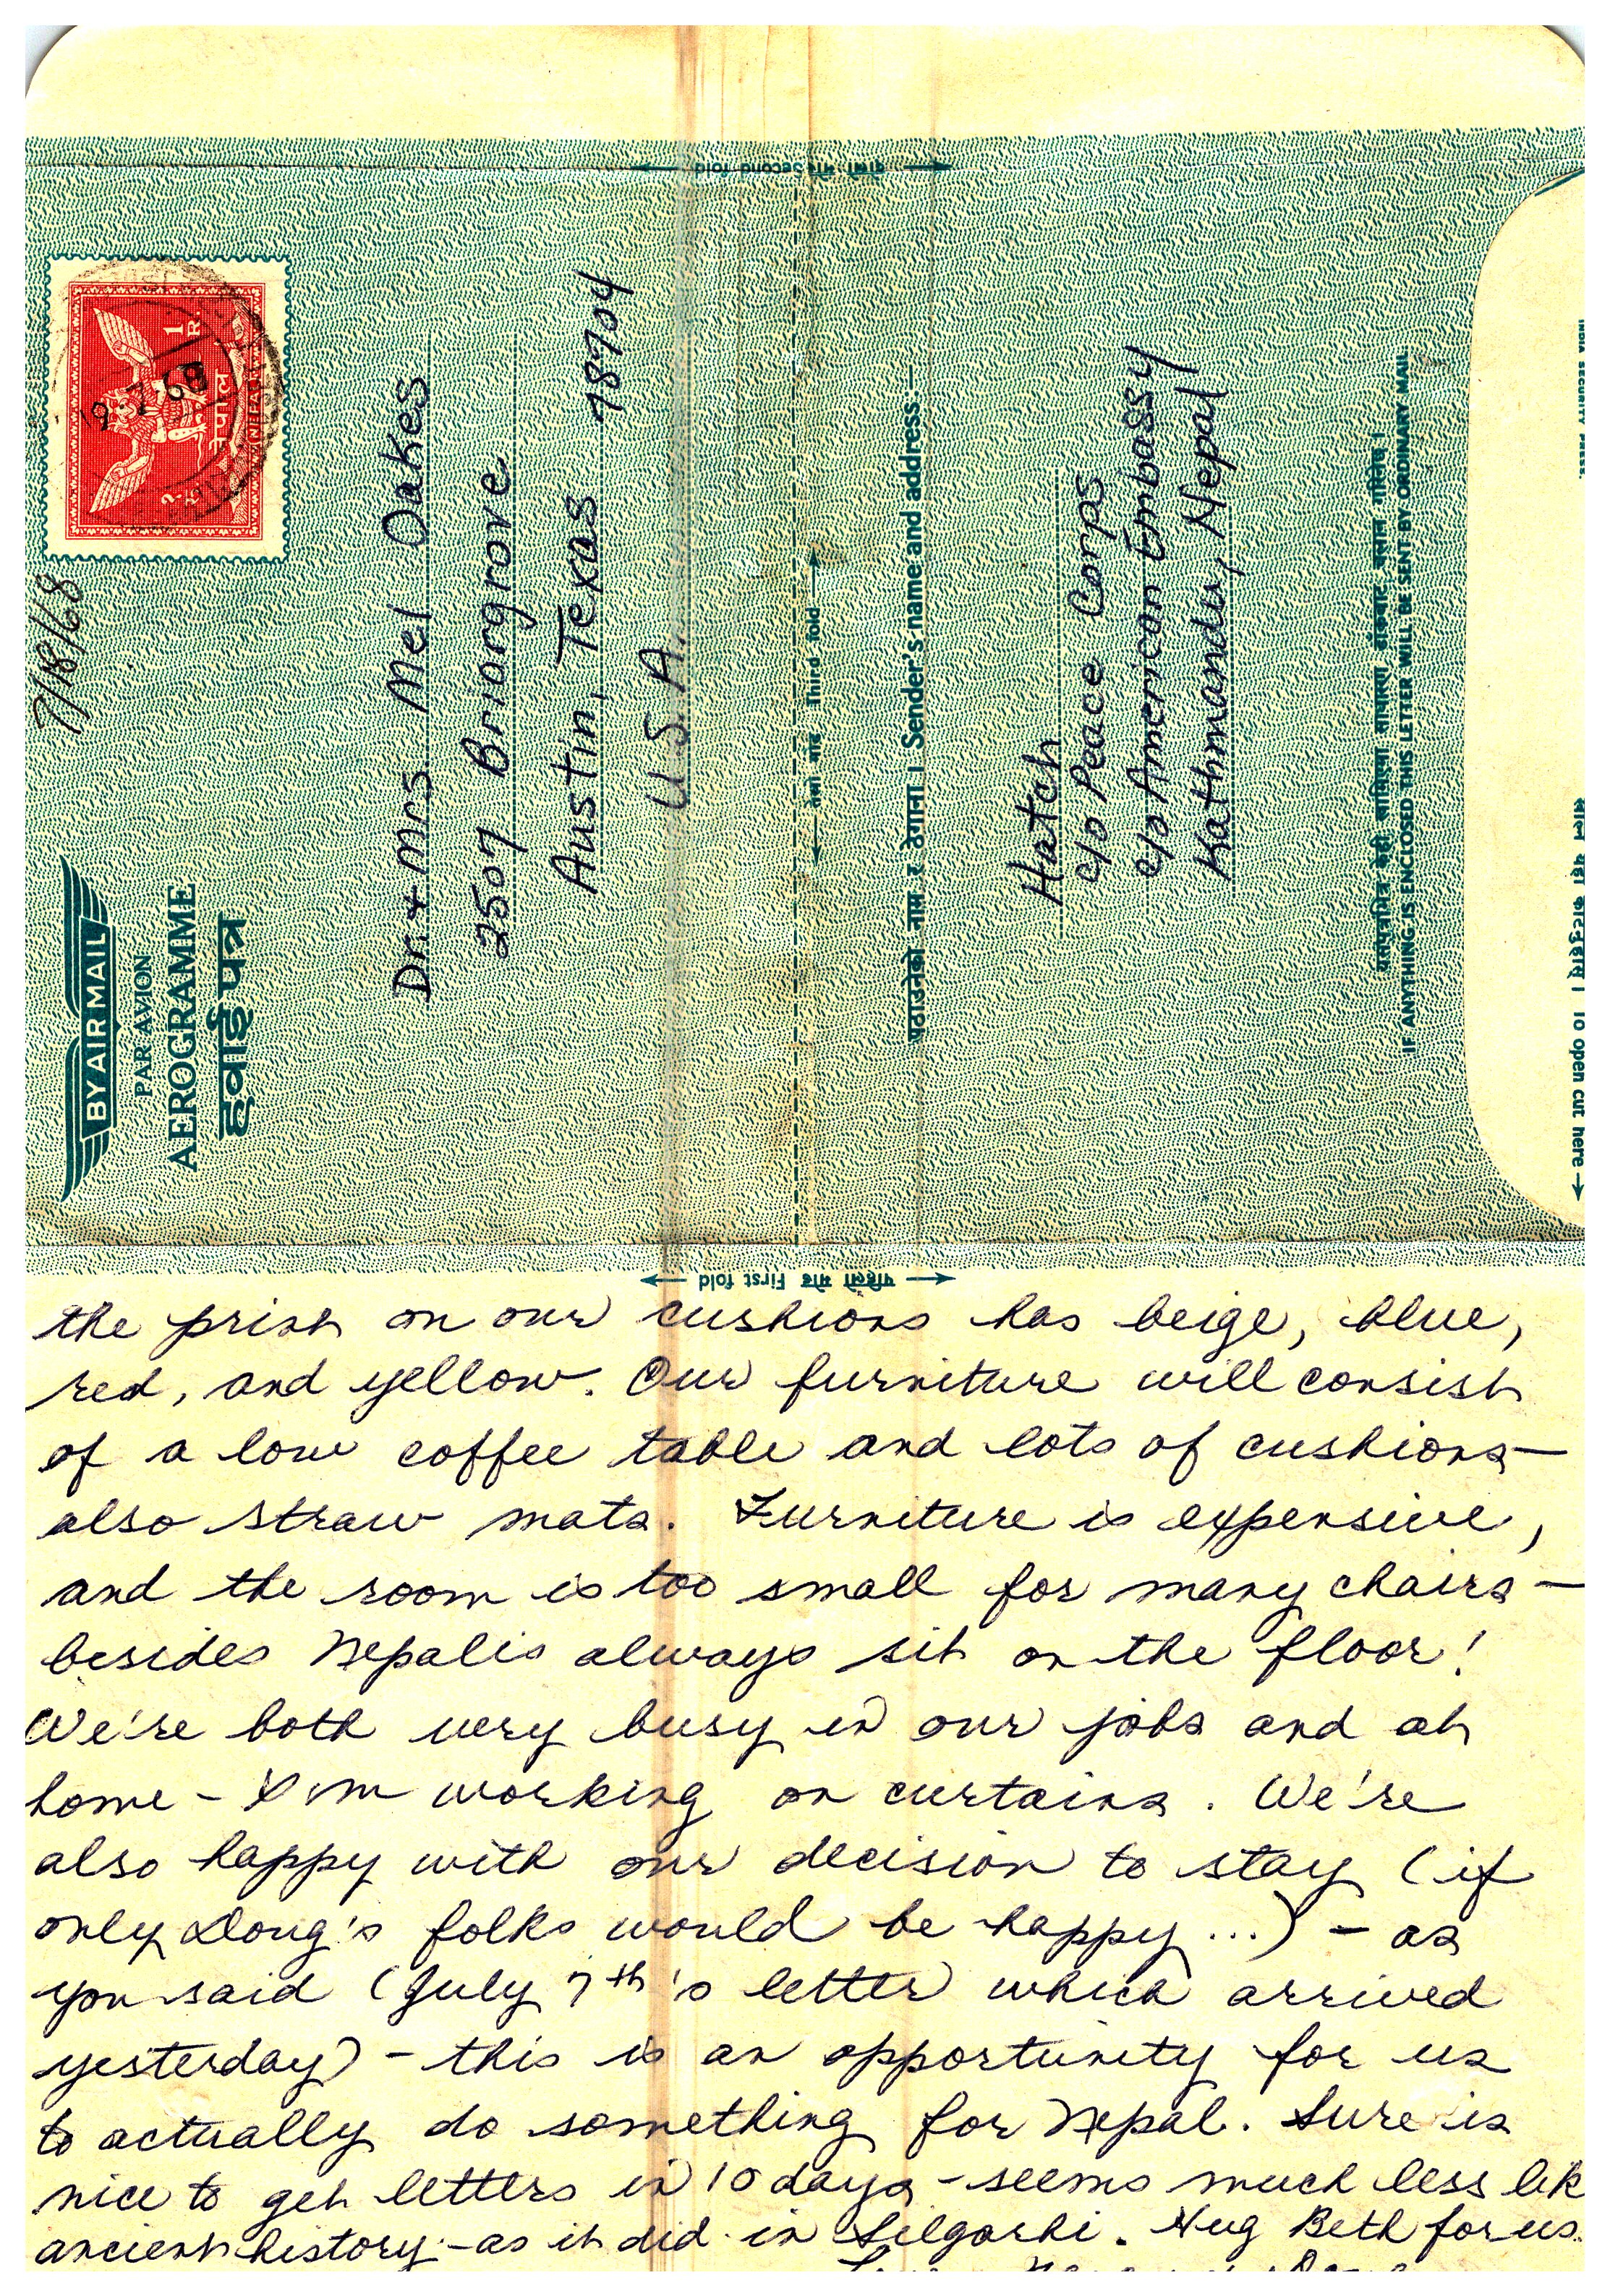 दोस्रो मोड Second fold
7/18/68
नेपाल
NEPAL
1
R.
BY AIR MAIL
PAR AVION
AEROGRAMME
हवाई पत्र
Dr. + Mrs. Mel Oakes
2507 Briargrove
Austin, Texas 78704
U.S.A.
तेस्रो मोड Third fold
पठाउनेको नाम र ठेगाना। Sender's name and address:—
Hatch
c/o Peace Corps
c/o American Embassy
Kathmandu, Nepal
IF ANYTHING IS ENCLOSED THIS LETTER WILL BE SENT BY ORDINARY MAIL
INDIA SECURITY PRESS.
To open cut here →
पहिलो मोड First fold
the print on our cushions has beige, blue,
red, and yellow. Our furniture will consist
of a low coffee table and lots of cushions—
also straw mats. Furniture is expensive,
and the room is too small for many chairs—
besides Nepalis always sit on the floor!
We're both very busy in our jobs and at
home – I'm working on curtains. We're
also happy with our decision to stay (if
only Doug's folks would be happy...) – as
you said (July 7th's letter which arrived
yesterday) – this is an opportunity for us
to actually do something for Nepal. Sure is
nice to get letters in 10 days – seems much less lik
ancient history – as it did in Silgarhi. Hug Beth for us.